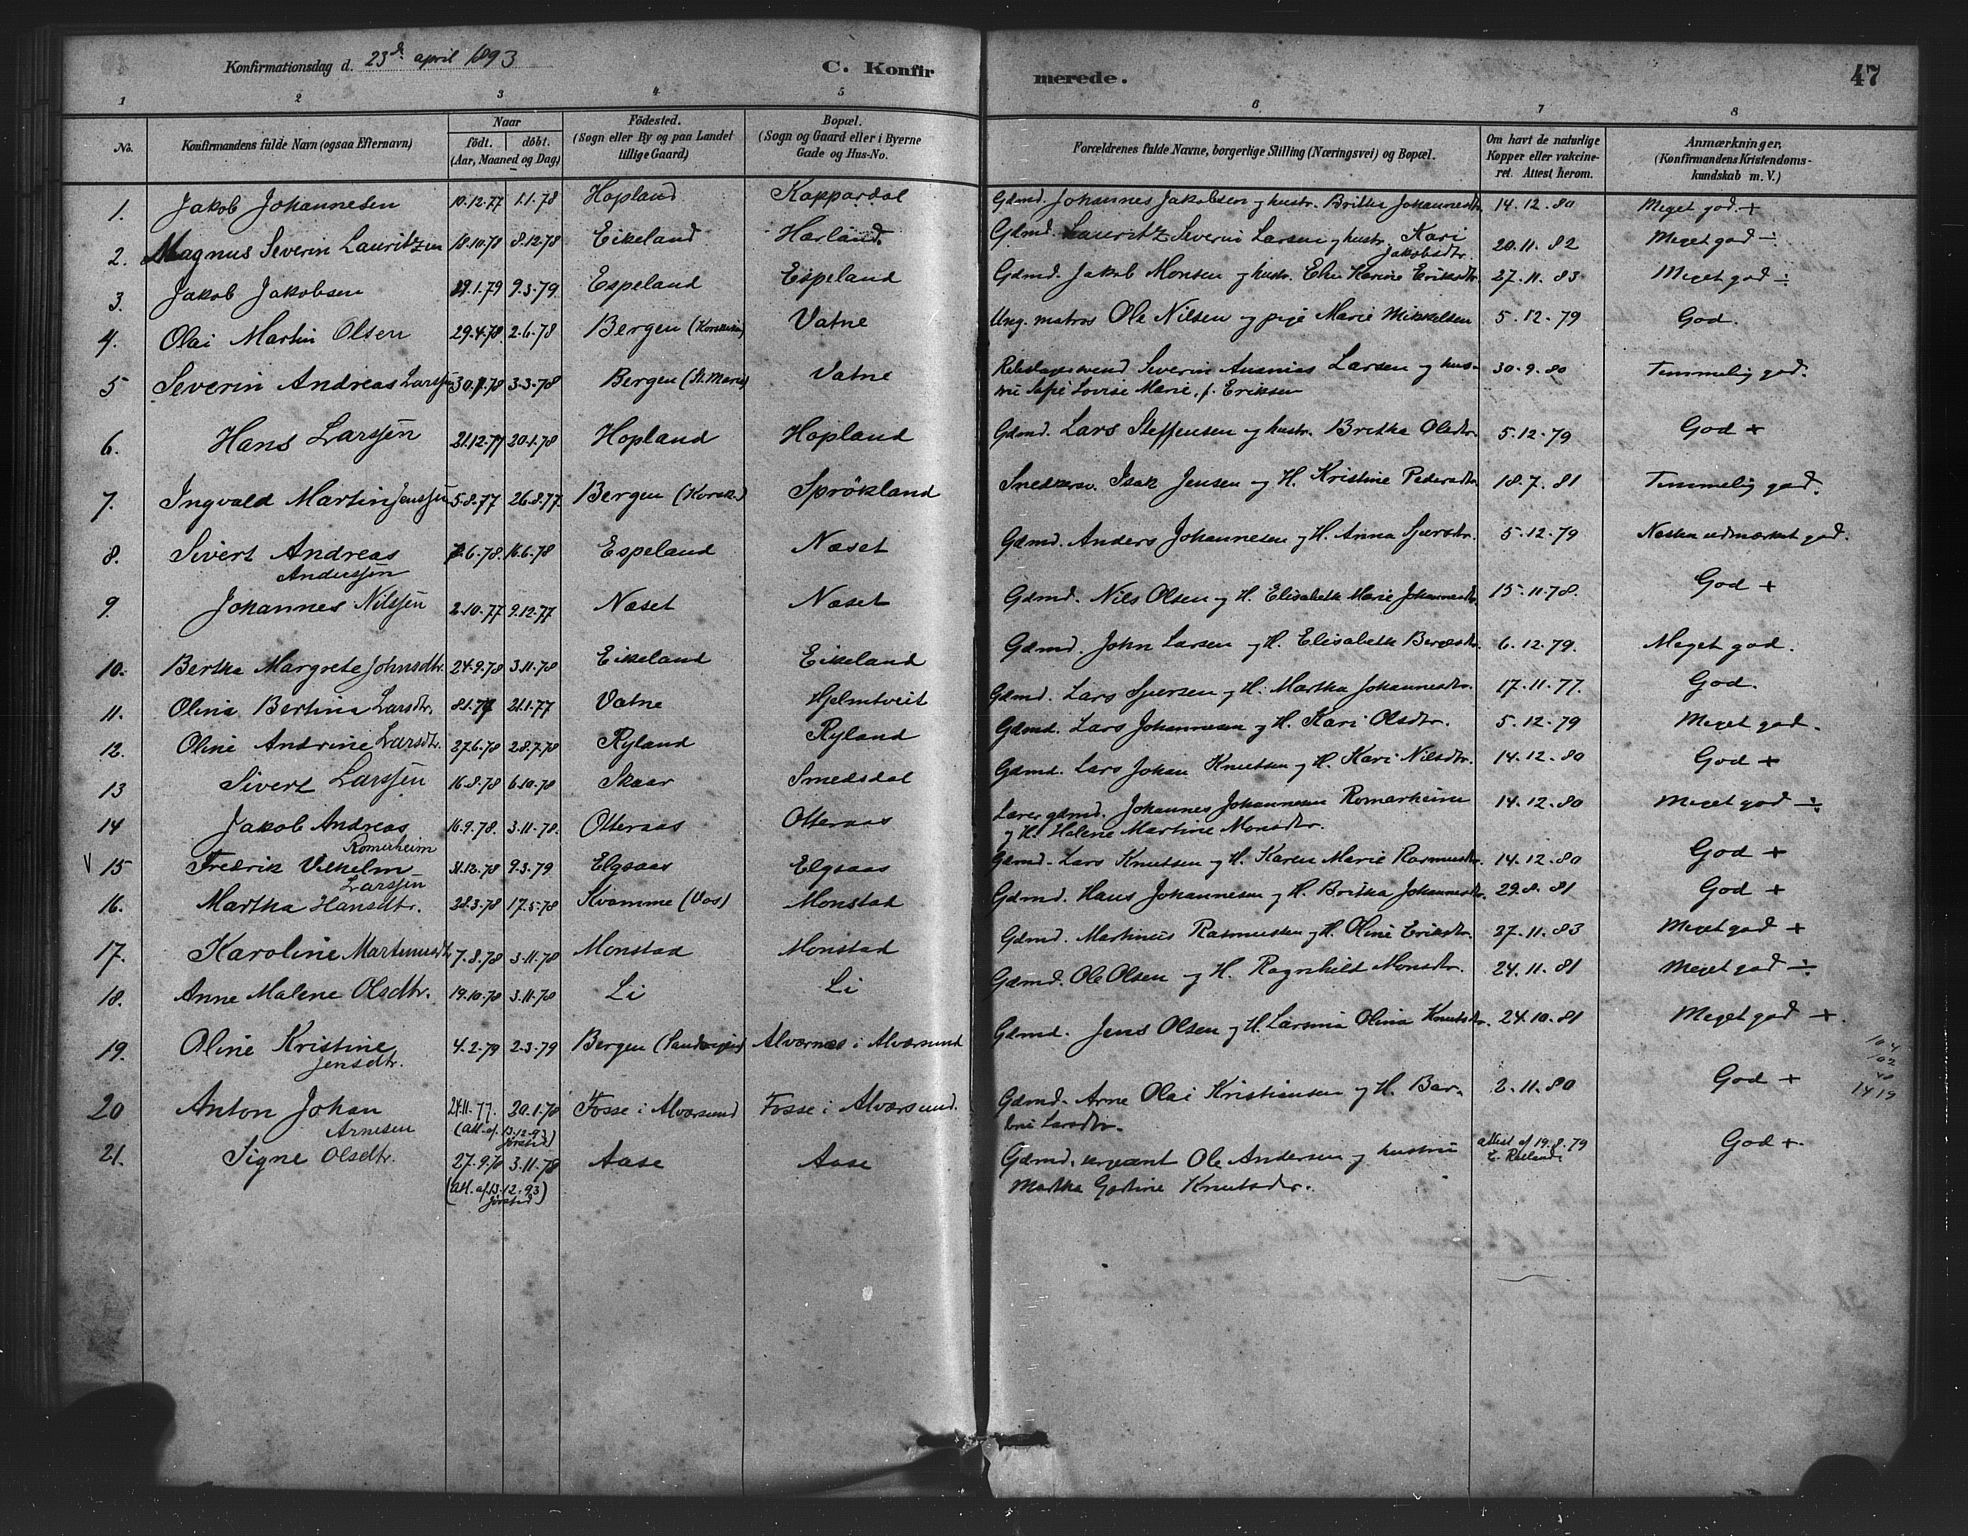 Konfirmationsdag d. 23de april 1893 C. Konfirmerede. 47
1 2 3 4 5 6 7 8
No. Konfirmandens fulde Navn (ogsaa Efternavn) Naar født. døbt. (Aar, Maaned og Dag) Fødested. (Sogn eller By og paa Landet tillige Gaard) Bopæl. (Sogn og Gaard eller i Byerne Gade og Hus-No. Forældrenes fulde Navne, borgerlige Stilling (Næringsvei) og Bopæl. Om havt de naturlige Kopper eller vakcineret. Attest herom. Anmærkninger, (Konfirmandens Kristendomskundskab m. V.)
1. Jakob Johannesen 10.12.77 1.1.78 Hopland Kappardal Gdmd. Johannes Jakobsen og hustr. Britha Johannesdtr. 14.12.80 Meget god +
2. Magnus Severin Lauritzen 18.10.78 8.12.78 Eikeland Harland Gdmd. Lauritz Severin Larsen og hustr. Kari Jakobsdtr. 20.11.82 Meget god ÷
3. Jakob Jakobsen 19.1.79 9.3.79 Espeland Espeland Gdmd. Jakob Monsen og hustr. Karine Eriksdtr. 27.11.83 Meget god ÷
4. Olai Martin Olsen 29.4.78 2.6.78 Bergen Vatne Ung. matros Ole Nilsen og pige Marie Mikkelsen 5.12.79 God.
5 Severin Andreas Larssen 30.1.78 3.3.78 Bergen (St. Marie) Vatne Severin Larsen og hustru Sofie Lovise Marie, f. Eriksen 30.9.80 Temmelig god.
6. Hans Larssen 21.12.77 20.1.78 Hopland Hopland Gdmd. Lars Steffensen og hustr. Britha Olsdtr. 5.12.79 God +
7. Ingvald Martin Jenssen 5.8.77 26.8.77 Bergen (Korsk.) Sprökland Isak Jensen og H. Kristine Pedersdtr. 18.7.81 Temmelig god.
8. Sivert Andreas Anderssen 7.6.78 16.6.78 Espeland Næset Gdmd. Anders Johannesen og H. Anna Sjursdtr. 5.12.79 Næsten udmærket god.
9. Johannes Nilssen 2.10.77 9.12.77 Næset Næset Gdmd. Nils Olsen og H. Elisabeth Marie Johannesdtr. 15.11.78. God +
10. Bertha Margrete Johnsdtr. 24.9.78 3.11.78 Eikeland Eikeland Gdmd. John Larsen og H. Elisabeth 6.12.79. Meget god.
11. Olina Bertina Larsdtr. 8.1.77 21.1.77 Vatne Hjelmtveit Gdmd. Lars Sjursen og H. Martha Johannesdtr. 17.11.77. God.
12. Oline Andrine Larsdtr. 27.6.78 28.7.78 Ryland Ryland Gdmd. Lars Johannesen og H. Kari Olsdtr. 5.12.79 Meget god.
13 Sivert Larssen 16.8.78 6.10.78 Skaar Smedsdal Gdmd. Lars Johan Knutsen og H. Kari Nilsdtr. 14.12.80 God +
14 Jakob Andreas Romerheim 16.9.78. 3.11.78. Otteraas Otteraas Lærer gdmd. Johannes Johannesen Romarheim og H. Halene Martine Monsdtr. 14.12.80 Meget god ÷
V 15 Fredrik Vilhelm Larssen 31.12.78 9.3.79 Elgsaas Elgsaas Gdmd. Lars Knutsen og H. Karen Marie Rasmusdtr. 14.12.80 God +
16. Martha Hansdtr. 28.3.78 17.5.78 Kvamme (Vos) Monstad Gdmd. Hans Johannesen og H. Britha Johannesdtr. 29.8.81 God +
17. Karoline Martinusdtr. 7.8.78 3.11.78 Monstad Monstad Gdmd. Martinus Rasmussen og H. Oline Eriksdtr. 27.11.83 Meget god +
18. Anne Malene Olsdtr. 19.10.78 3.11.78 Li Li Gdmd. Ole Olsen og H. Ragnhild Monsdtr. 24.11.81 Meget god ÷
19. Oline Kristine Jensdtr. 4.2.79 2.3.79 Bergen (Sandvigen) Alværnes i Alværsund Gdmd. Jens Olsen og H. Larsina Olina Knutsdtr. 24.10.81 Meget god +.
104
102
48
1419
20 Anton Johan Arnesen 24.11.77. 20.1.78 (Att. af 13.12.93 Jørstad) Fosse i Alværsund Fosse i Alværsund. Gdmd. Arne Olai Kristiansen og H. Larsdtr. 2.11.80 God +
21. Signe Olsdtr. 27.9.78 3.11.78 (Att. af 13.12.93) Jørstad Aase Aase Gdmd. sergeant Ole Andersen og hustru Martha Gjertine Knutsdtr. attest af 19.8.79 God +.